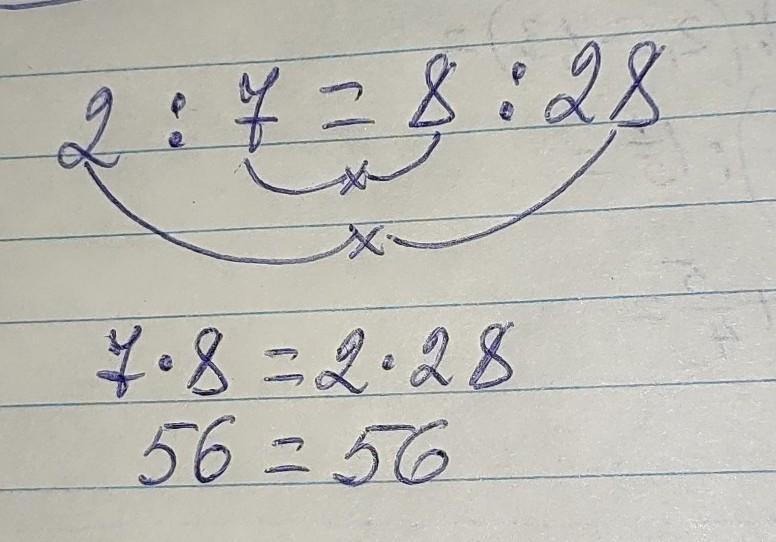 2 : 7 = 8 : 28
x
x
7 · 8 = 2 · 28
56 = 56